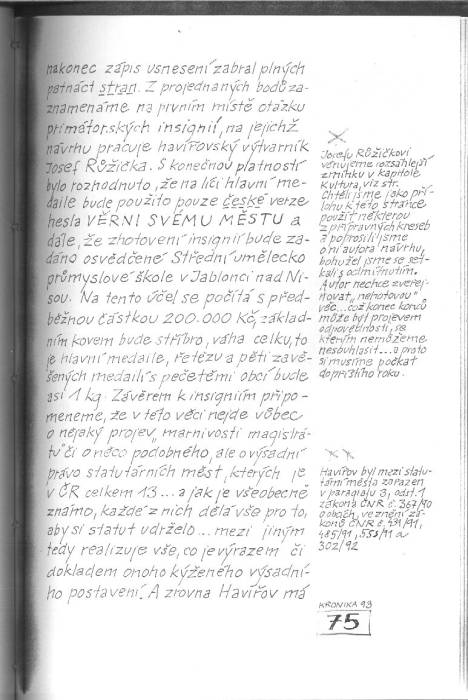 nakonec zápis usnesení zabral plných
patnáct stran. Z projednaných bodů za-
znamenáme na prvním místě otázku
primátorských insignií, na jejichž
návrhu pracuje havířovský výtvarník
Josef Růžička. S konečnou platností
bylo rozhodnuto, že na líci hlavní me-
daile bude použito pouze české verze
hesla VĚRNI SVÉMU MĚSTU a
dále, že zhotovení insignií bude za-
dáno osvědčené Střední umělecko
průmyslové škole v Jablonci nad Ni-
sou. Na tento účel se počítá s před-
běžnou částkou 200.000 Kč, základ-
ním kovem bude stříbro, váha celku, to
je hlavní medaile, řetězu a pěti zavě-
šených medailí s pečetěmi obcí bude
asi 1 kg. Závěrem k insigniím připo-
meneme, že v této věci nejde vůbec
o nějaký projev „marnivosti magistrá-
tu“ či o něco podobného, ale o výsadní
právo statutárních měst, kterých je
v ČR celkem 13... a jak je všeobecně
známo, každé z nich dělá vše pro to,
aby si statut udrželo... mezi jiným
tedy realizuje vše, co je výrazem či
dokladem onoho kýženého výsadní-
ho postavení. A zrovna Havířov má
Josefu Růžičkovi
věnujeme rozsáhlejší
zmínku v kapitole
Kultura, viz str.
Chtěli jsme jako pří-
lohu k této stránce
použít některou
z přípravných kreseb
a poprosili jsme
o ni autora návrhu,
bohužel jsme se set-
kali s odmítnutím.
Autor nechce zveřej-
ňovat „nehotovou“
věc... což konec konců
může být projevem
odpovědnosti, se
kterým nemůžeme
nesouhlasit... a proto
si musíme počkat
do příštího roku.
Havířov byl mezi statu-
tární města zařazen
v paragrafu 3, odst. 1
zákona ČNR č. 367/90
o obcích, ve znění zá-
konů ČNR č. 439/91,
485/91, 553/91 a
302/92
KRONIKA 93
75